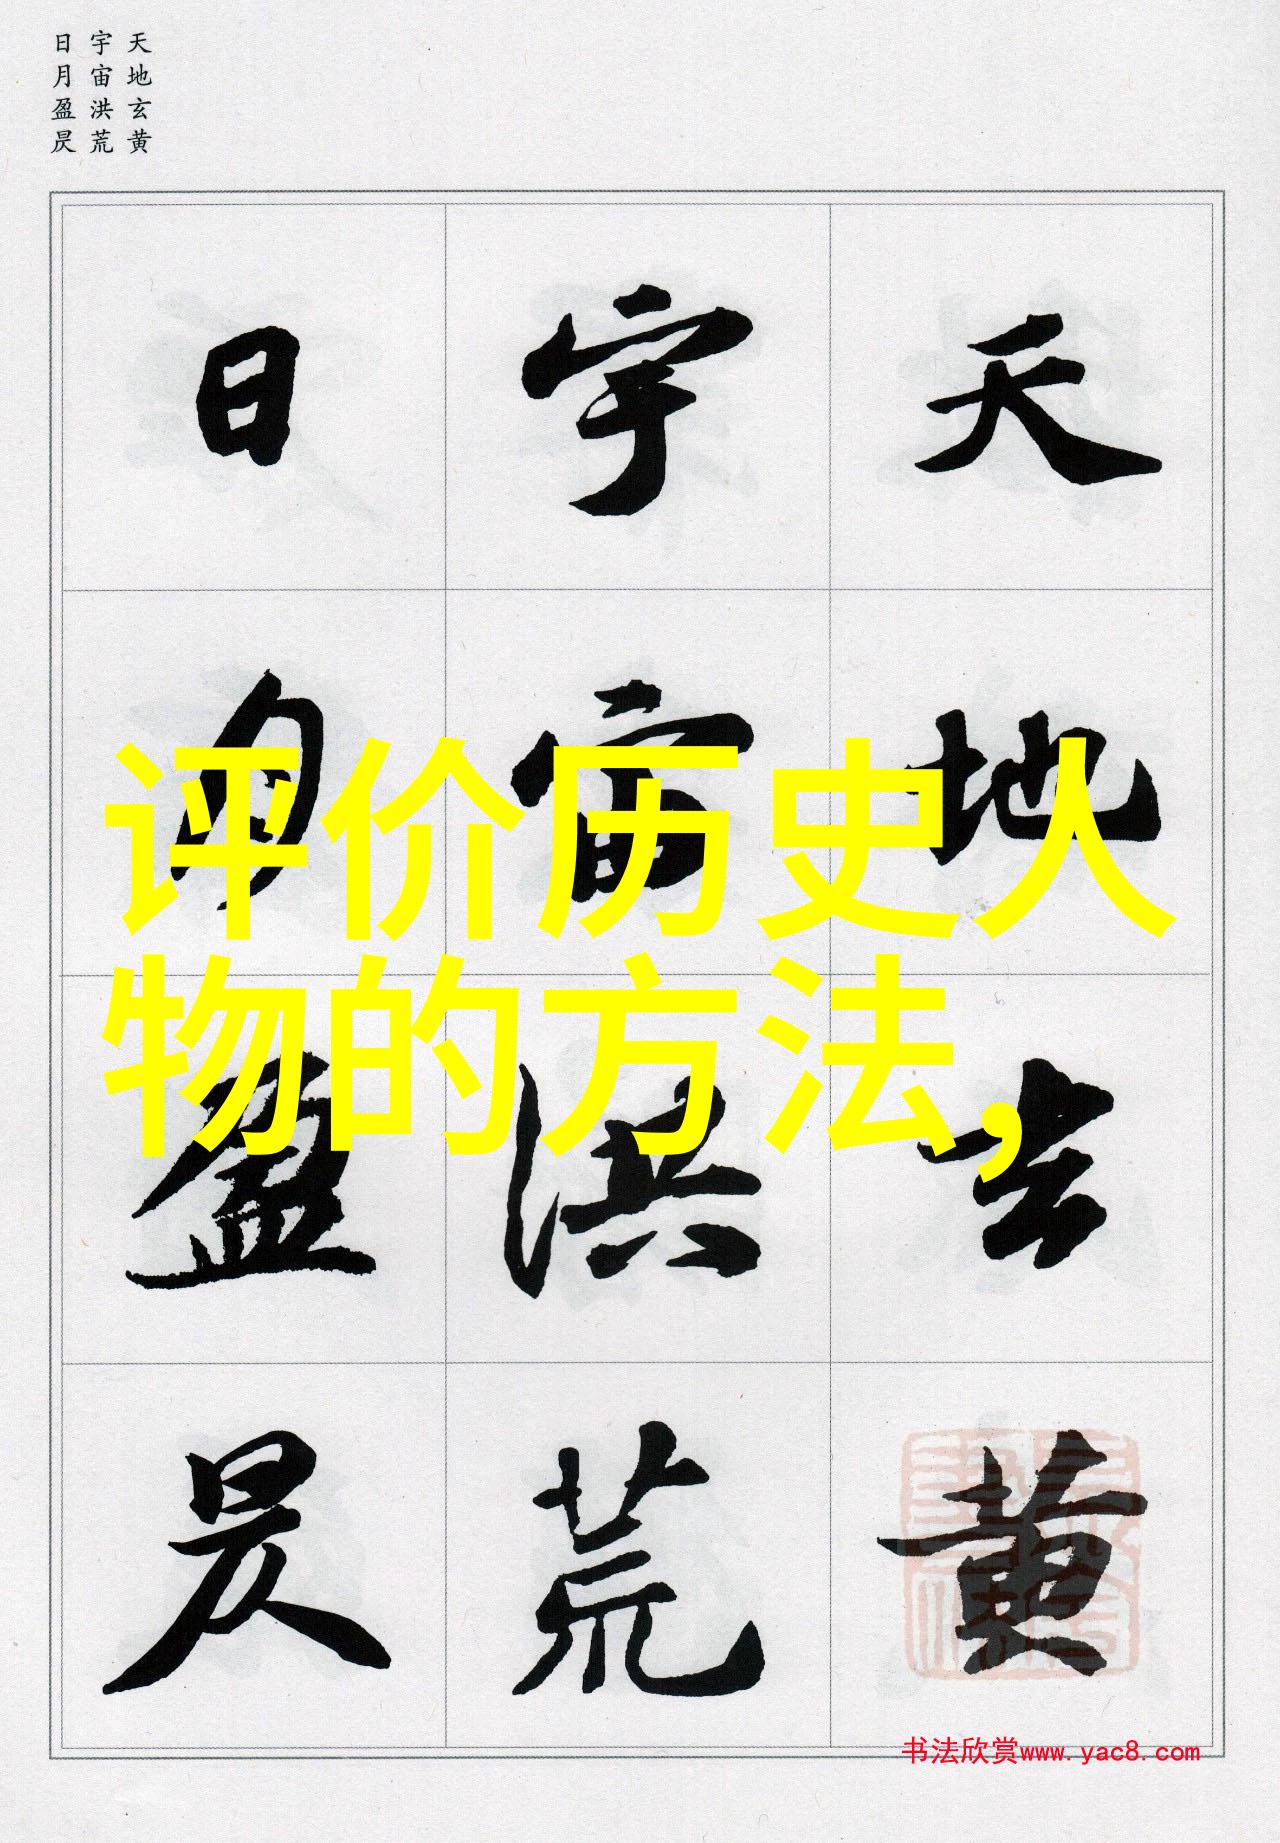 天地玄黄
宇宙洪荒
日月盈昃
天地玄黄
宇宙洪荒
日月盈昃
评价历史人
物的方法,
书法欣赏www.yac8.com